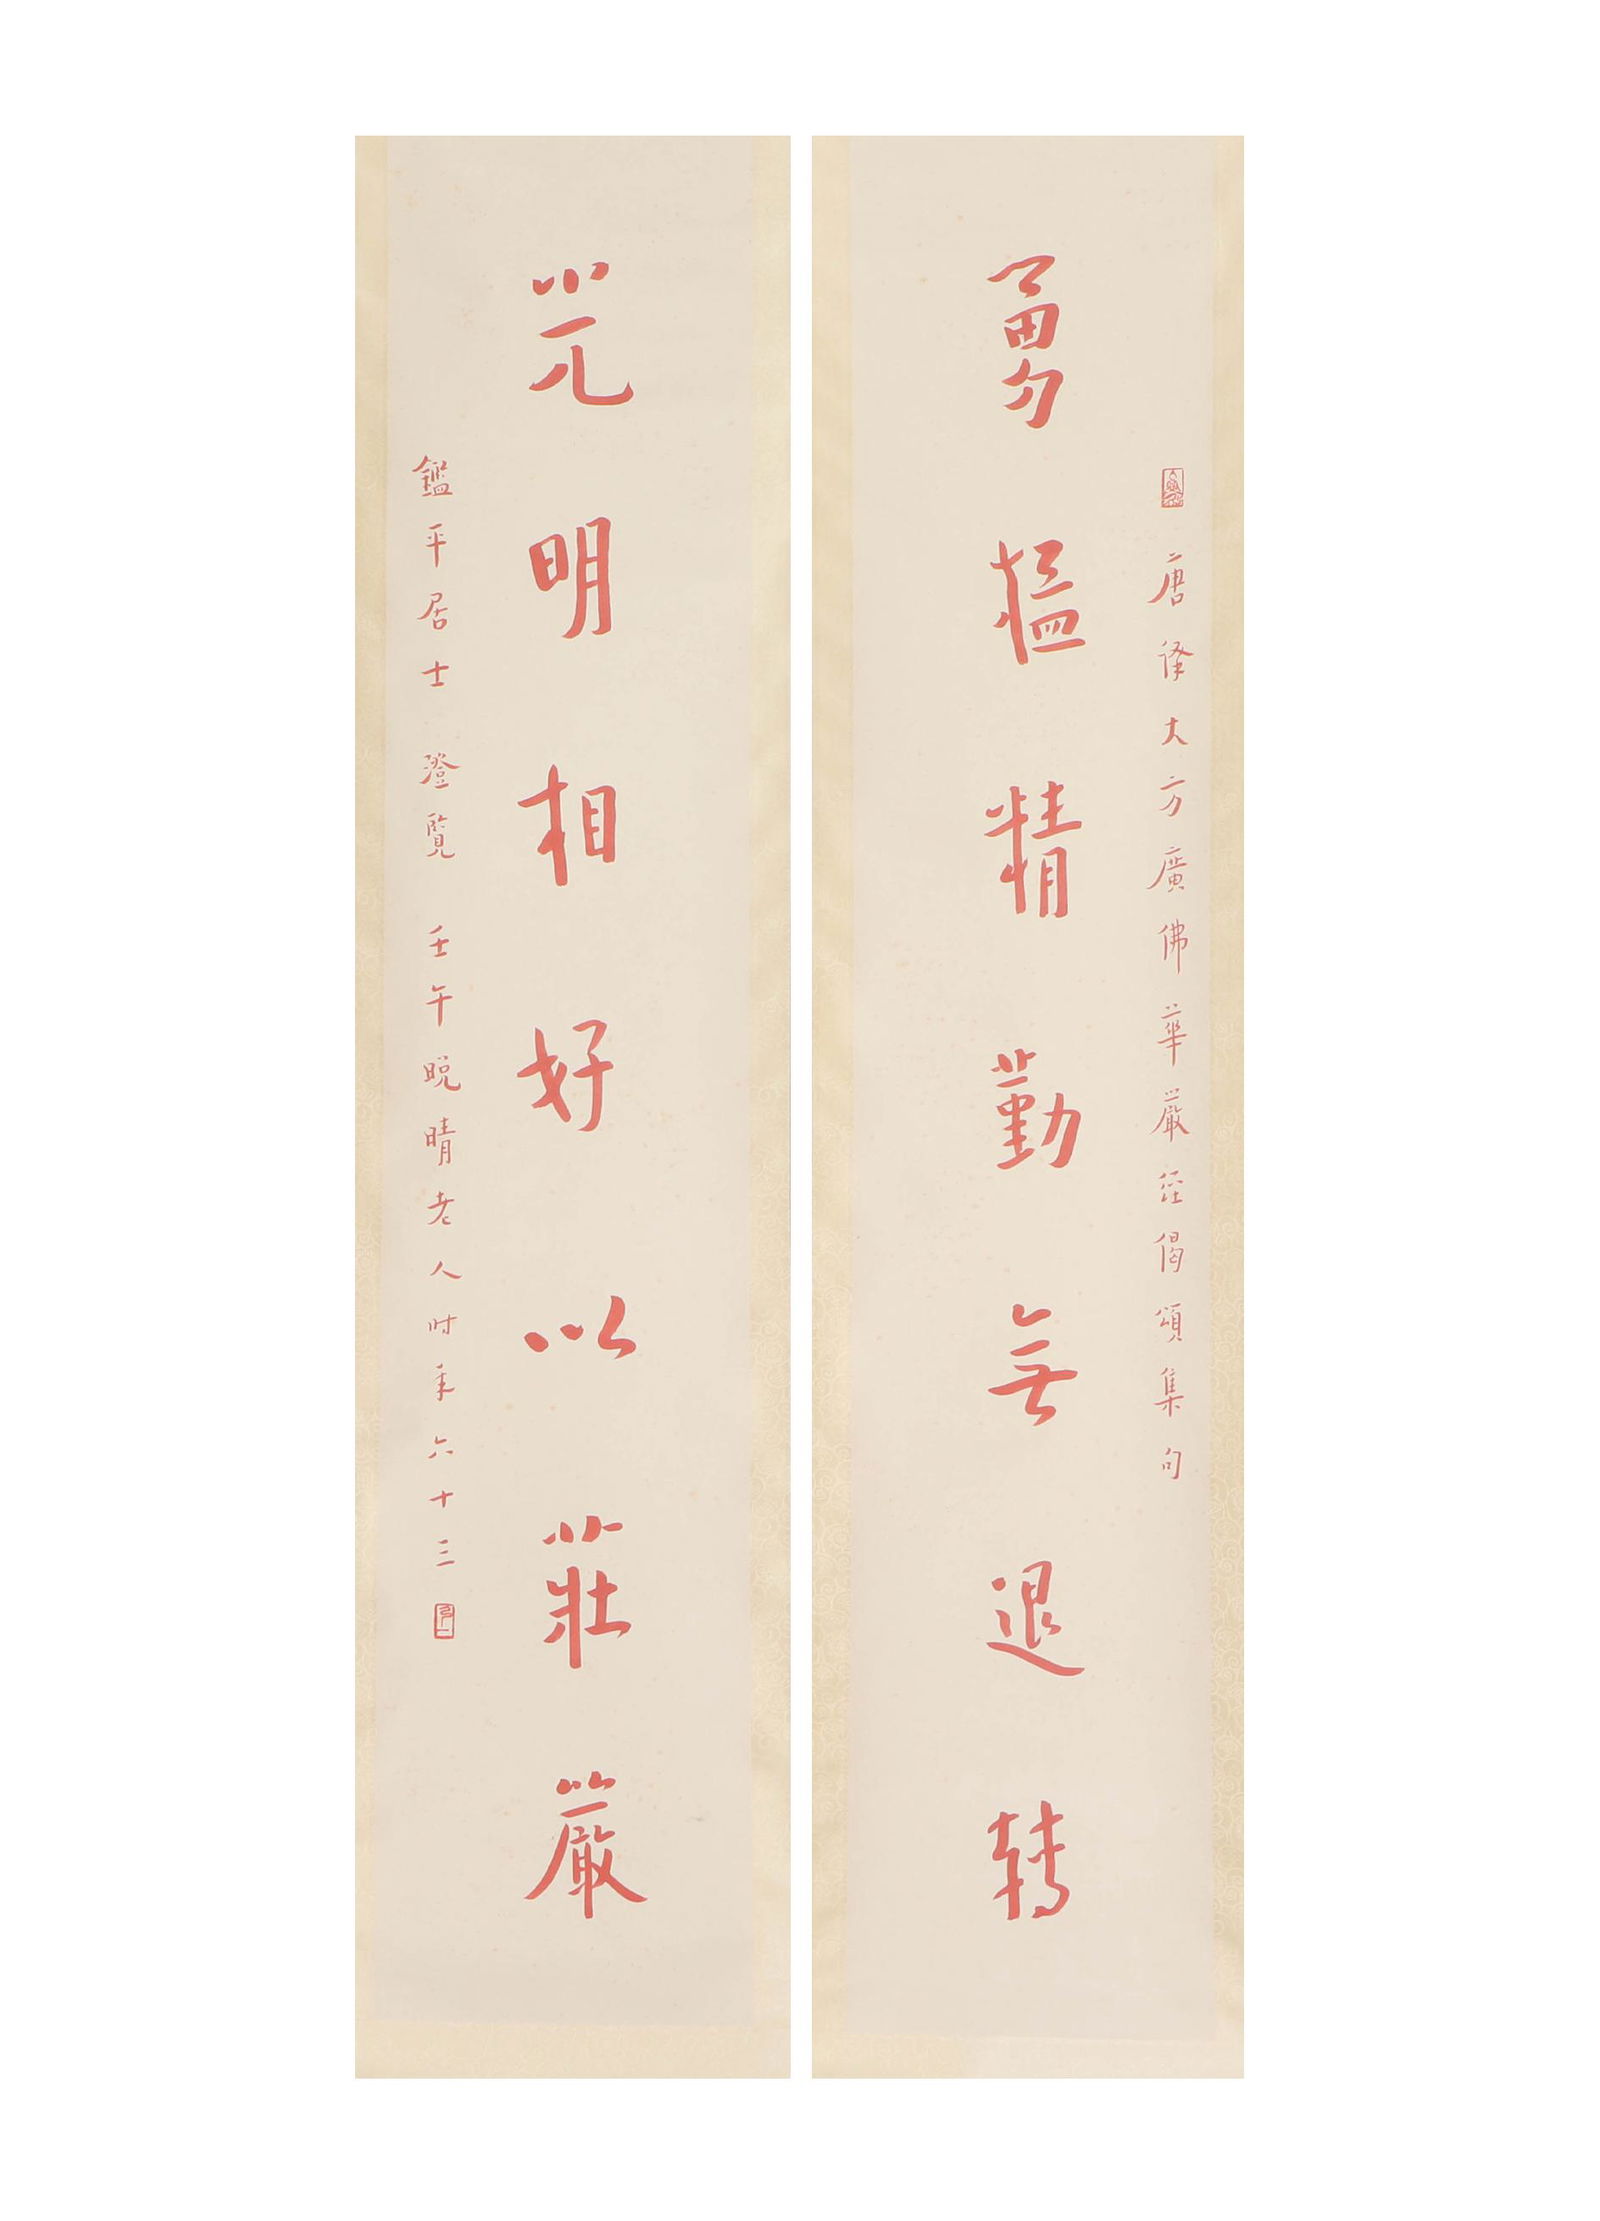 唐譯大方廣佛華嚴經偈頌集句
勇猛精勤無退轉
光明相好以莊嚴
鑑平居士 澄覽 壬午晚晴老人时年六十三